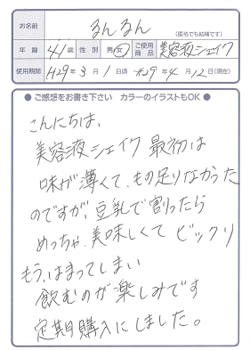 お名前 るんるん (匿名でも結構です)
年齢 41歳 性別 男・女 ご使用商品 美容液シェイク
使用期間 H29年3月1日～H29年4月12日(現在)
●ご感想をお書き下さい カラーのイラストもOK●
こんにちは、
美容液シェイク 最初は
味が薄くて、もの足りなかった
のですが、豆乳で割ったら
めっちゃ、美味しくて ビックリ
もう、はまってしまい
飲むのが楽しみです
定期購入にしました。